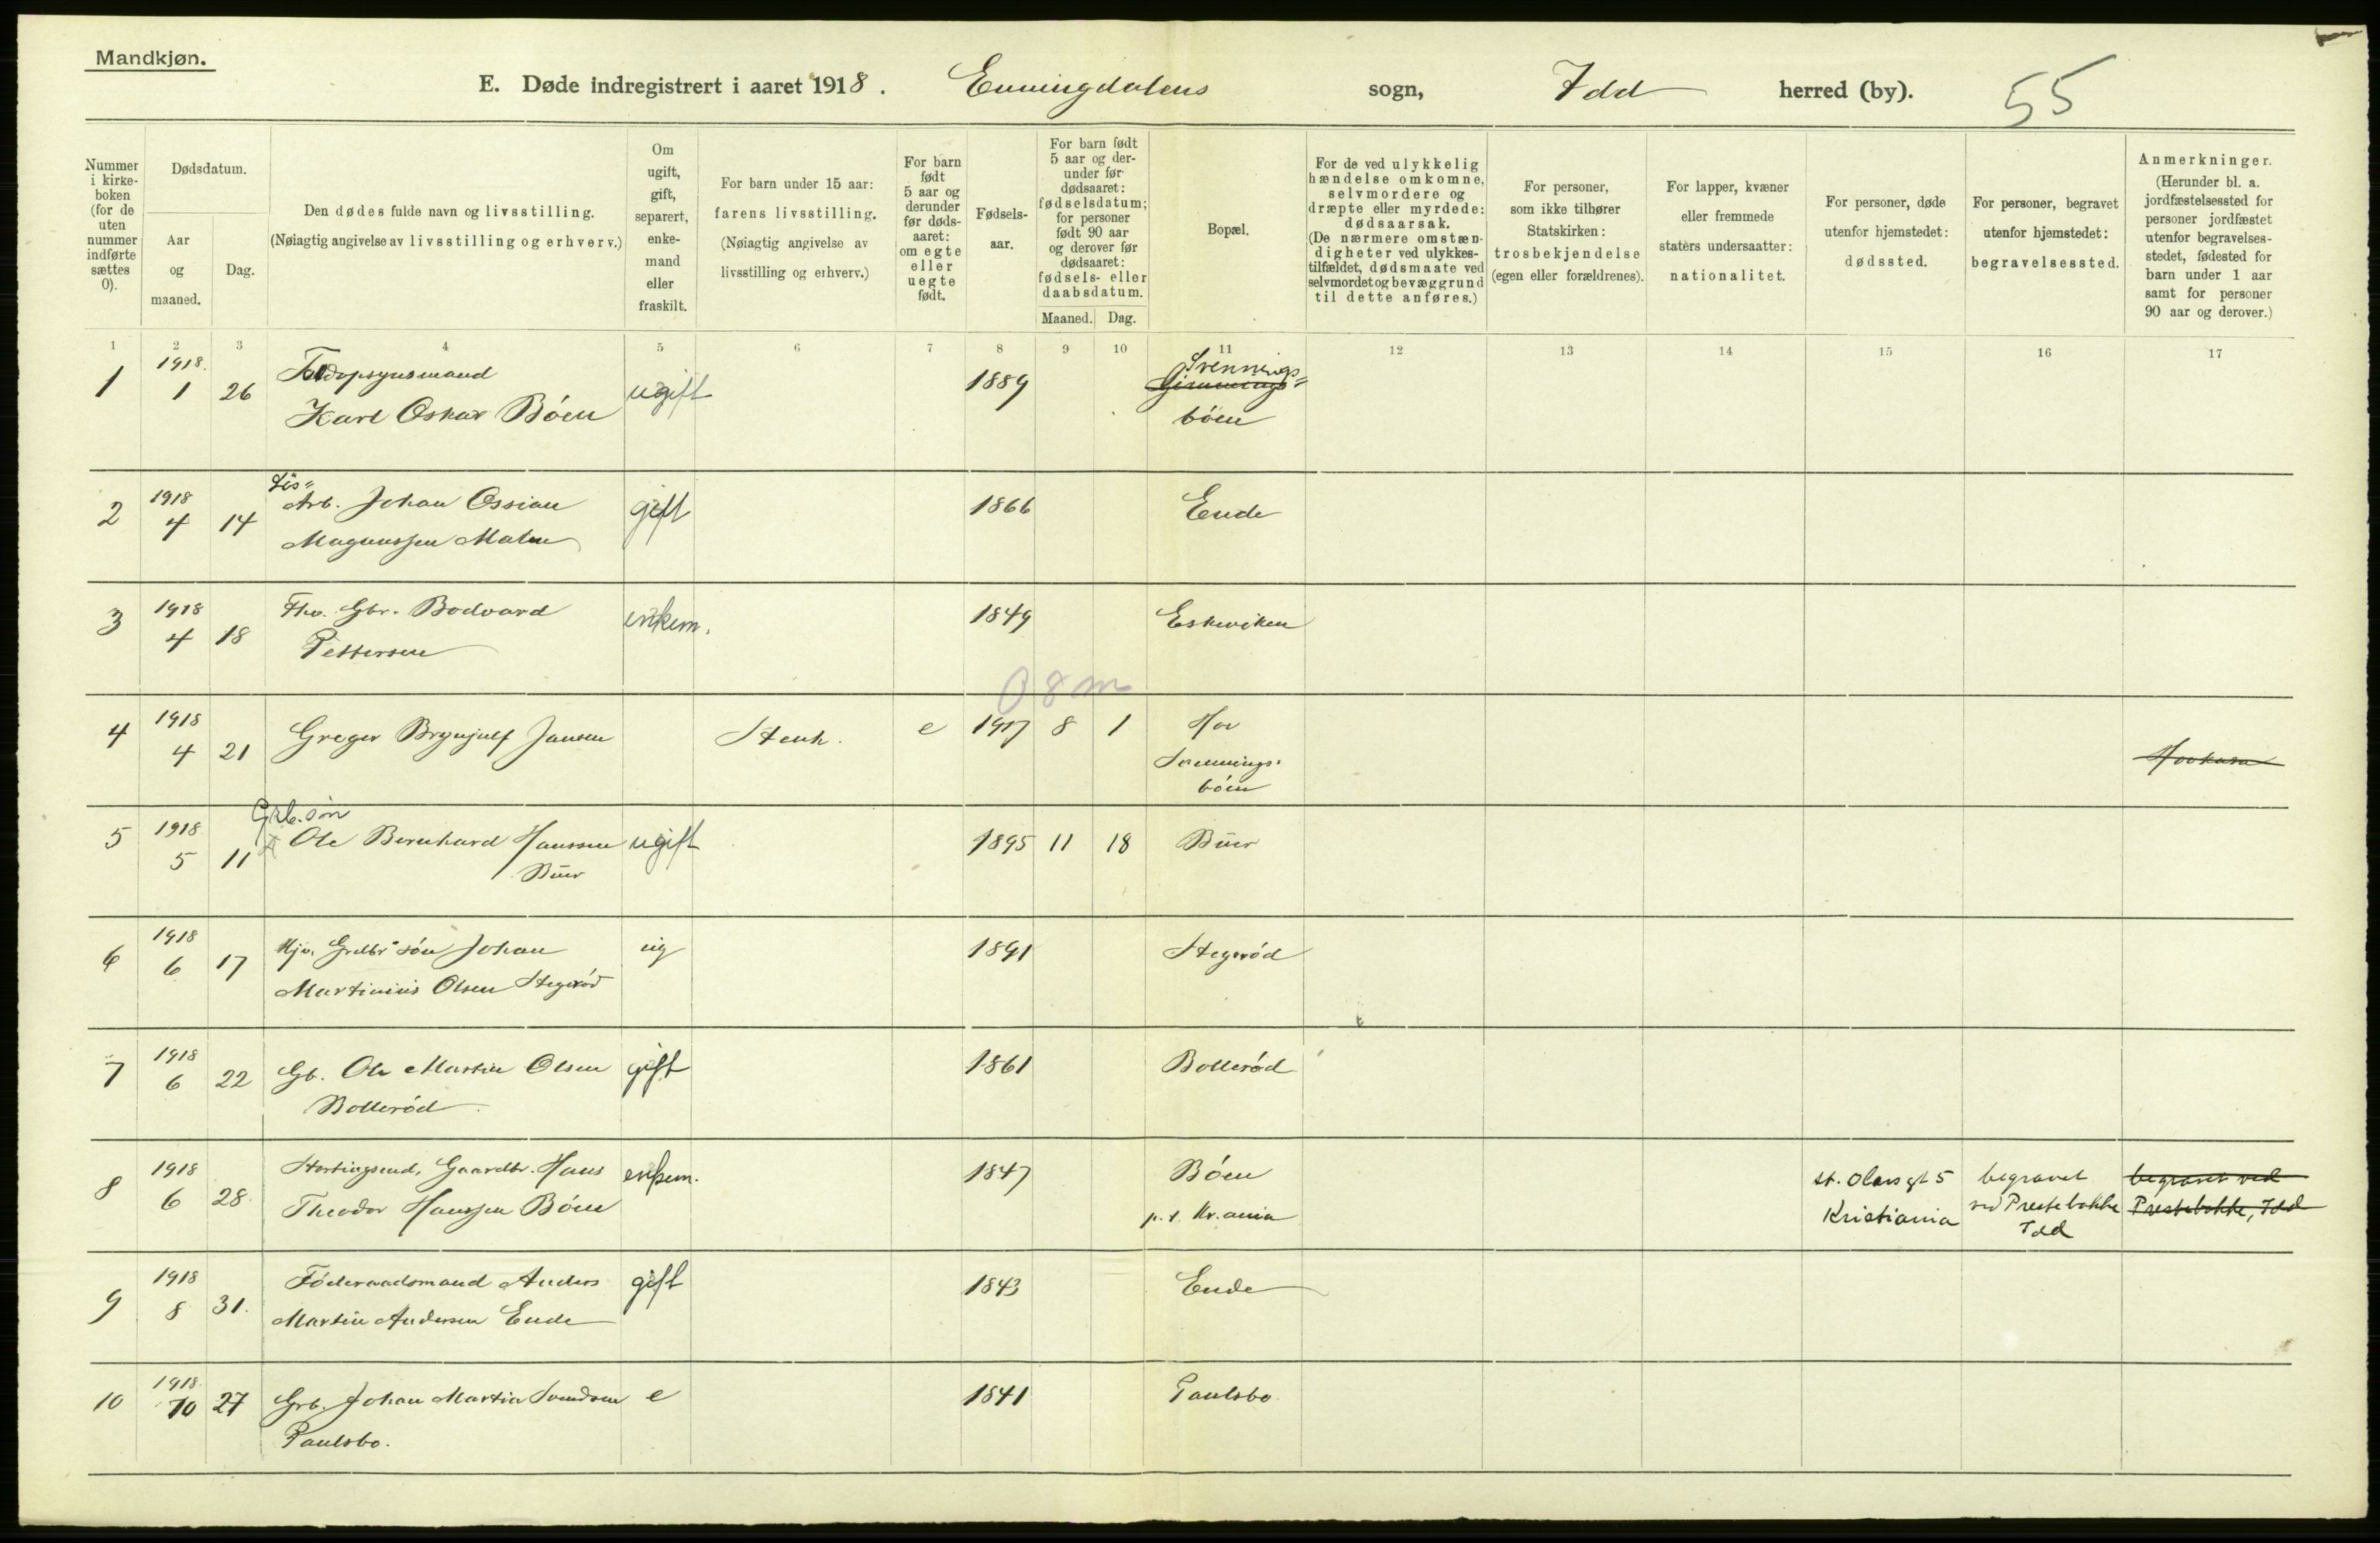 Mandkjøn.
E. Døde indregistrert i aaret 1918. Enningdalens sogn, Idd herred (by). 55
Nummer i kirkeboken (for de uten nummer indførte sættes 0).
Dødsdatum.
Aar og maaned.
Dag.
Den dødes fulde navn og livsstilling.
(Nøiagtig angivelse av livsstilling og erhverv.)
Om ugift, gift, separert, enkemand eller fraskilt.
For barn under 15 aar: farens livsstilling.
(Nøiagtig angivelse av livsstilling og erhverv.)
For barn født 5 aar og derunder før dødsaaret: om egte eller uegte født.
Fødselsaar.
For barn født 5 aar og derunder før dødsaaret: fødselsdatum; for personer født 90 aar og derover før dødsaaret: fødsels- eller daabsdatum.
Maaned. Dag.
Bopæl.
For de ved ulykkelig hændelse omkomne, selvmordere og dræpte eller myrdede: dødsaarsak.
(De nærmere omstændigheter ved ulykkestilfældet, dødsmaate ved selvmordet og bevæggrund til dette anføres.)
For personer, som ikke tilhører Statskirken: trosbekjendelse (egen eller forældrenes).
For lapper, kvæner eller fremmede staters undersaatter: nationalitet.
For personer, døde utenfor hjemstedet: dødssted.
For personer, begravet utenfor hjemstedet: begravelsessted.
Anmerkninger.
(Herunder bl. a. jordfæstelsessted for personer jordfæstet utenfor begravelsesstedet, fødested for barn under 1 aar samt for personer 90 aar og derover.)
1 2 3 4 5 6 7 8 9 10 11 12 13 14 15 16 17
1 1918. 1 26 Karl Oskar Böen ugift 1889 Svennings=
böen
2 1918 4 14 Arb. Johan Ossian gift 1866 Ende
Magnussen
3 1918 4 18 Fhv. Gbr. Bodvard enkem. 1849 Eskeviken
Pettersen
08m
4 1918 4 21 Greger Brynjulf Jansen Stenh. e 1917 8 1 Hov
Svennings-
böen
Grb. søn
5 1918 5 11 Ole Bernhard Hanssen ugift 1895 11 18 Buer
Buer
6 1918 6 17 Hjv. Grdbr sön Johan ug 1891 Stegeröd
Martinius Olsen Stegeröd
7 1918 6 22 Gb. Ole Martin Olsen gift 1861 Bolleröd
Bolleröd
8 1918 6 28 Stortingsmd, Gaardbr. Hans enkem. 1847 Böen St. Olavs gt 5 begravet begravet ved
Theodor Hanssen Böen p. t. Kr.ania Kristiania ved Prestebakke Prestebakke, Idd
Idd
9 1918 8 31. Föderaadsmand Anders gift 1843 Ende
Martin Andersen Ende
10 1918. 10 27 Grb. Johan Martin Svendsen e 1841 Paulsbo
Paulsbo.